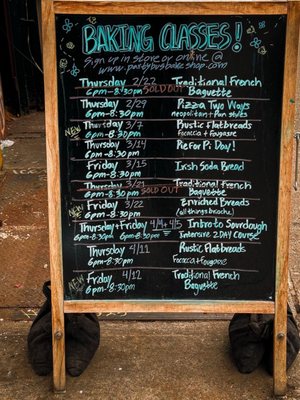 BAKING CLASSES!
Sign up in store or online @
www.partybusbakeshop.com
Thursday 2/22 Traditional French
6pm-8:30pm SOLD OUT Baguette
Thursday 2/29 Pizza Two Ways
6pm-8:30pm neapolitan + pan styles
NEW Thursday 3/7 Rustic Flatbreads
6pm-8:30pm Focaccia + Fougasse
Thursday 3/14 Pie For Pi Day!
6pm-8:30pm
Friday 3/15 Irish Soda Bread
6pm-8:30pm
Thursday 3/21 Traditional French
6pm-8:30pm SOLD OUT Baguette
NEW Friday 3/22 Enriched Breads
6pm-8:30pm (all things brioche)
Thursday + Friday 4/4 + 4/5 Intro to Sourdough
6pm-8:30pm 6pm-8:30pm Intensive 2 DAY Course
Thursday 4/11 Rustic Flatbreads
6pm-8:30pm Focaccia + Fougasse
NEW Friday 4/12 Traditional French
6pm-8:30pm Baguette